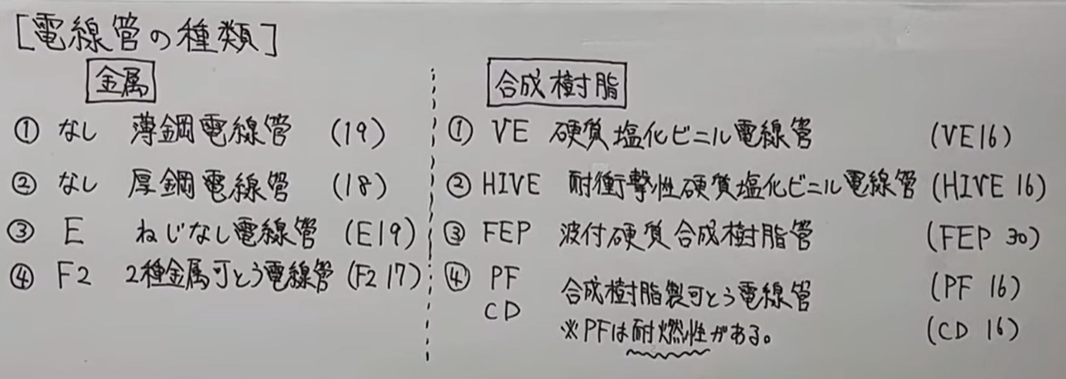 [電線管の種類]
金属
① なし 薄鋼電線管 (19)
② なし 厚鋼電線管 (18)
③ E ねじなし電線管 (E19)
④ F2 2種金属可とう電線管 (F2 17)
合成樹脂
① VE 硬質塩化ビニル電線管 (VE16)
② HIVE 耐衝撃性硬質塩化ビニル電線管 (HIVE 16)
③ FEP 波付硬質合成樹脂管 (FEP 30)
④ PF 合成樹脂製可とう電線管 (PF 16)
CD (CD 16)
※PFは耐燃性がある。